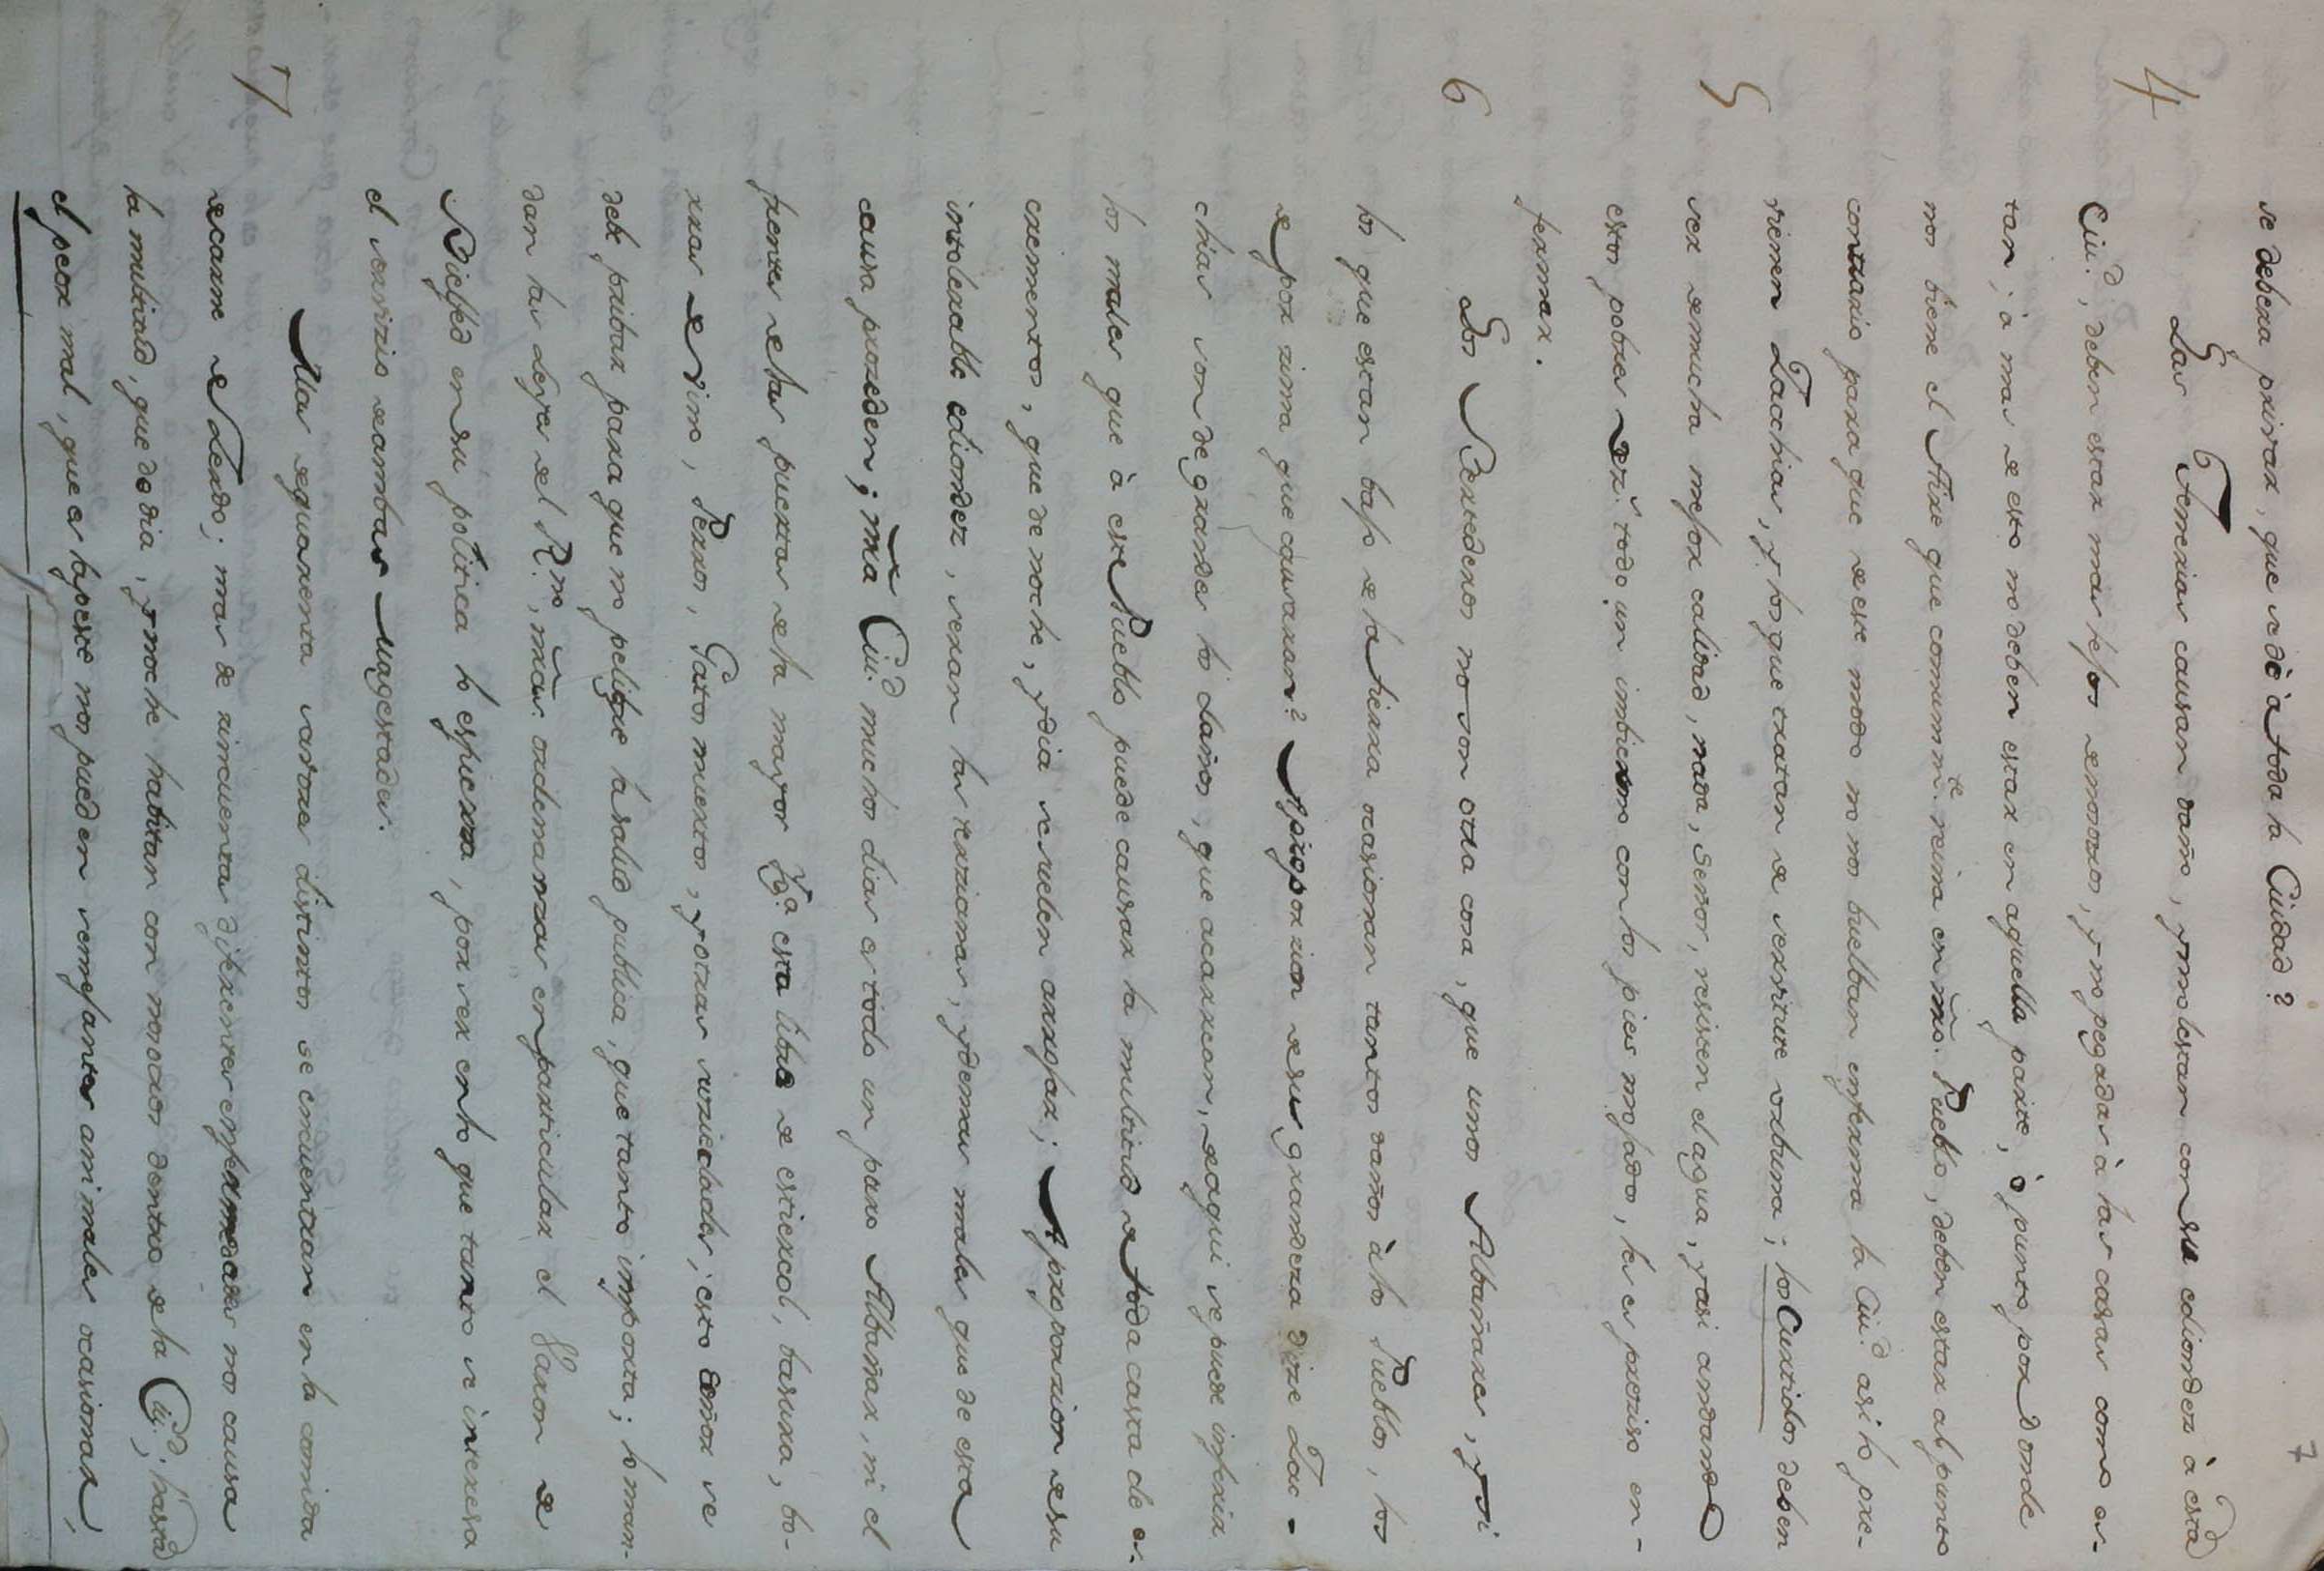 7
se debera privar, que se dè à toda la Ciudad?
4 Las Tenerias causan daño, y molestan con su ediondez à esta
Ciu.d, deben estar mas lejos de nosotros, y no pegadas à las casas como es-
tan; à mas de esto no deben estar en aquella parte, ò punto por donde
nos biene el Aire que comunm.te reina en nr̃o. Pueblo, deben estar al punto
contrario para que de este modo no nos buelban enferma la Ciu.d asi lo pre-
5 vienen Tachias, y los que tratan de semejante; los Curtidos deben
ser de mucha mejor calidad, nada, Señor, resisten el agua, y asi andando
estos pobres todo un imbierno con los pies mojados, les es preciso en-
fermar.
6 Los Vertederos no son otra cosa, que unos Albañares, y si
los que estan bajo de la tierra ocasionan tantos daños à los Pueblos, los
de por zima que causaran? Aproporzion de su grandeza dize Tac-
chias son de grandes los daños, que acarrean, de aqui se puede inferir
los males que à este Pueblo puede causar la multitud de toda casta de es-
crementos, que de noche, y dia se suelen arrojar; Aproporzion de su
intolerable ediondez, seran las terzianas, y demas males que de esta
causa proceden; nr̃a Ciu.d muchos dias es todo un puro Albañar, ni el
frente de las puertas de la mayor Yg.a esta libre de estiercol, basura, bo-
rras de vino, Perros, Gatos muertos, y otras suziedades; esto Señor se
debe pribar para que no peligre la salud publica, que tanto importa; lo man-
dan las leyes del R.no, nr̃as. ordenanzas en particular el Varon de
Bielfed en su politica lo esfuerza, por ser en lo que tanto se interesa
el servizio de ambas Magestades.
7 Mas de quarenta varones distintos se encuentran en la comida
de carne de Zerdo; mas de zincuenta diferentes enfermedades nos causa
la multitud, que de dia, y noche habitan con nosotros dentro de la Ciu.d; hasta
el peor mal, que es la peste nos pueden semejantes animales ocasionar,